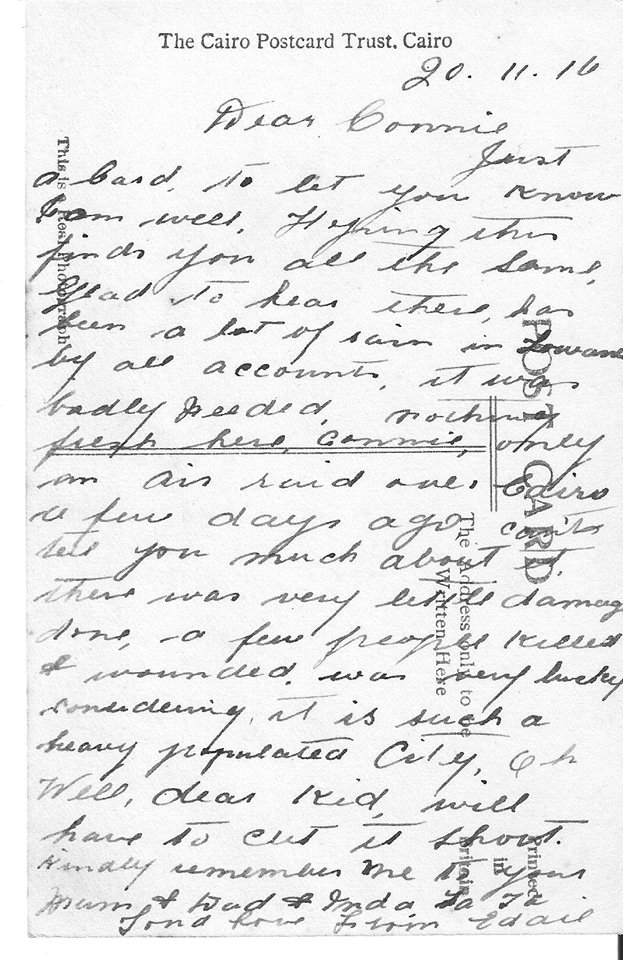 The Cairo Postcard Trust. Cairo
20. 11. 16
Dear Connie
Just
a Card, to let you know
I am well, Hoping this
finds you all the same,
Glad to hear there, has
been a lot of rain in
by all accounts, it was
badly needed, nothing
fresh here, Connie, only
an air raid over Cairo
a few days ago can't
tell you much about it.
there was very little damag
done, a few people killed
& wounded. was very lucky
considering, it is such a
heavy populated City, Oh
Well, dear Kid, will
have to cut it short.
Kindly remember me to your
Mum & Dad & Ta Ta
Fond love from
This is a Real Photograph
POST CARD
The Address only to be
Written Here
Printed
in
Britain